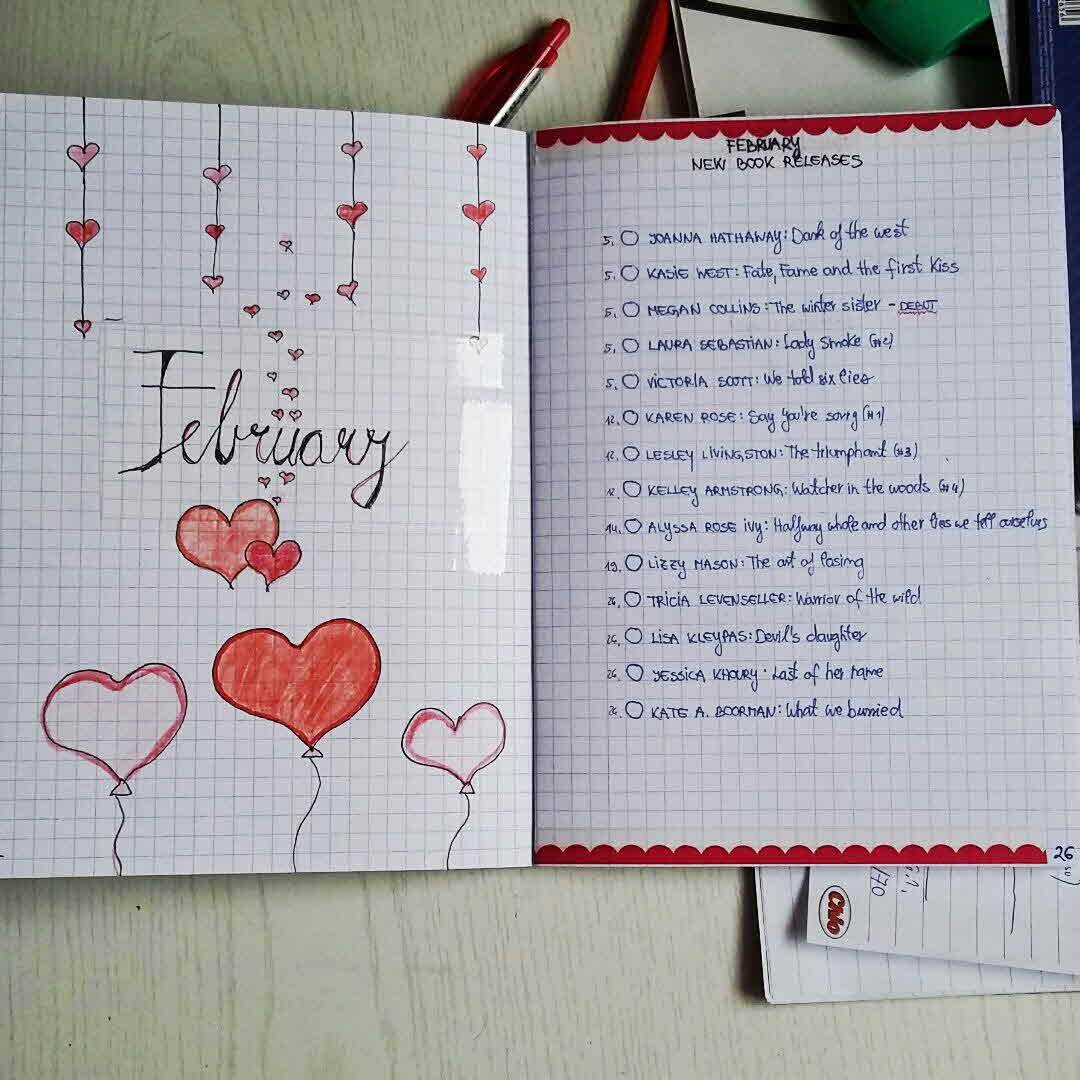 February
FEBRUARY
NEW BOOK RELEASES
5. JOANNA HATHAWAY: Dark of the west
5. KASIE WEST: Fate, Fame and the first kiss
5. MEGAN COLLINS: The winter sister - DEBUT
5. LAURA SEBASTIAN: Lady Smoke (#2)
5. VICTORIA SCOTT: We told six lies
12. KAREN ROSE: Say you're sorry (#1)
12. LESLEY LIVINGSTON: The triumphant (#3)
12. KELLEY ARMSTRONG: Watcher in the woods (#4)
14. ALYSSA ROSE IVY: Halfway whole and other lies we tell ourselves
19. LIZZY MASON: The art of losing
26. TRICIA LEVENSELLER: Warrior of the wild
26. LISA KLEYPAS: Devil's daughter
26. JESSICA KHOURY: Last of her name
26. KATE A. BOORMAN: What we burried
26
Chio